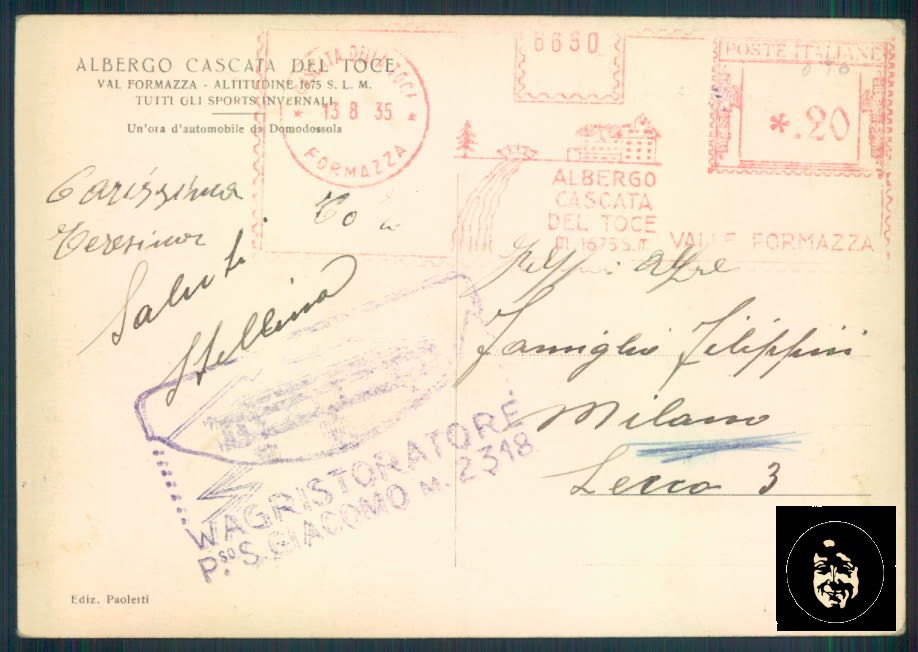 ALBERGO CASCATA DEL TOCE
VAL FORMAZZA - ALTITUDINE 1675 S. L. M.
TUTTI GLI SPORTS INVERNALI
Un'ora d'automobile da Domodossola
CASCATA DELLA TOCE
* 13 8 35 *
FORMAZZA
6690
POSTE ITALIANE
*.20
ALBERGO
CASCATA
DEL TOCE
m. 1675 s.m. VALLE FORMAZZA
Carissima
Teresina
Saluti
Stellina
Famiglia Filippini
Milano
Lecco 3
WAGRISTORATORE
P.so S. GIACOMO M. 2318
Ediz. Paoletti